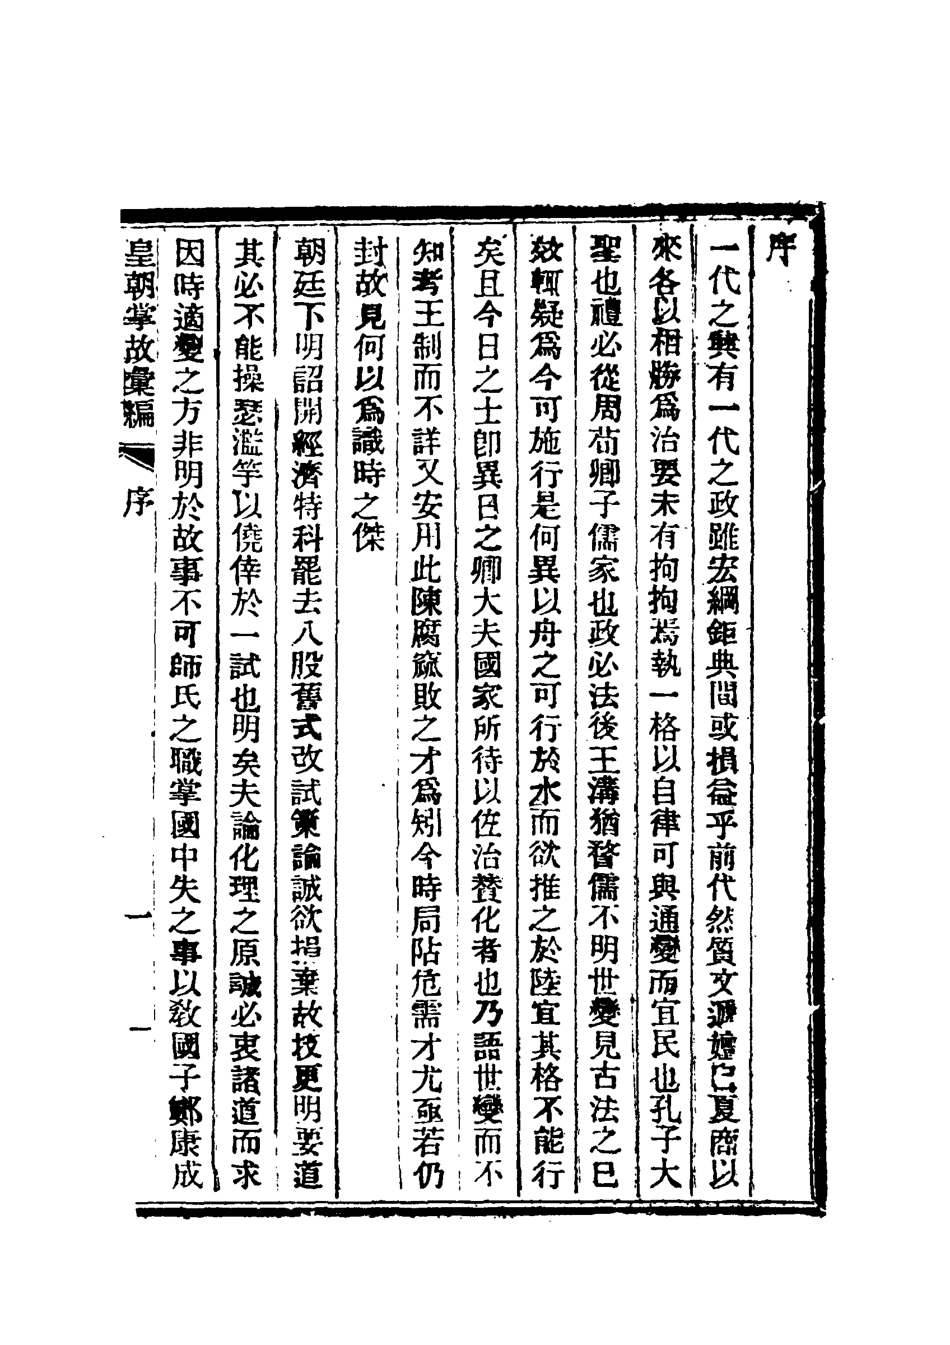 序
一代之興有一代之政雖宏綱鉅典間或損益乎前代然質文遞嬗已夏商以
來各以相勝爲治要未有拘拘焉執一格以自律可與通變而宜民也孔子大
聖也禮必從周荀卿子儒家也政必法後王溝猶瞀儒不明世變見古法之已
效輒疑爲今可施行是何異以舟之可行於水而欲推之於陸宜其格不能行
矣且今日之士卽異日之卿大夫國家所待以佐治贊化者也乃語世變而不
知考王制而不詳又安用此陳腐窳敗之才爲矧今時局阽危需才尤亟若仍
封故見何以爲識時之傑
朝廷下明詔開經濟特科罷去八股舊式改試策論誠欲捐棄故技更明要道
其必不能操瑟濫竽以僥倖於一試也明矣夫論化理之原誠必衷諸道而求
因時適變之方非明於故事不可師氏之職掌國中失之事以敎國子鄭康成
皇朝掌故彙編
序
一
一